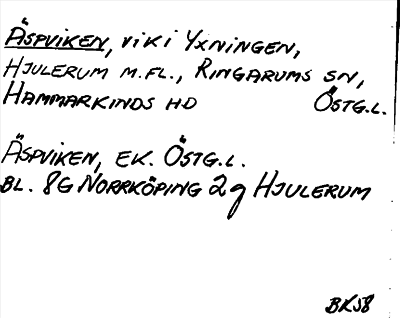 Äspviken, vik i Yxningen,
Hjulerum m.fl., Ringarums sn,
Hammarkinds hd Östg.l.
Äspviken, ek. Östg.l.
bl. 8G Norrköping 2g Hjulerum
BKSB